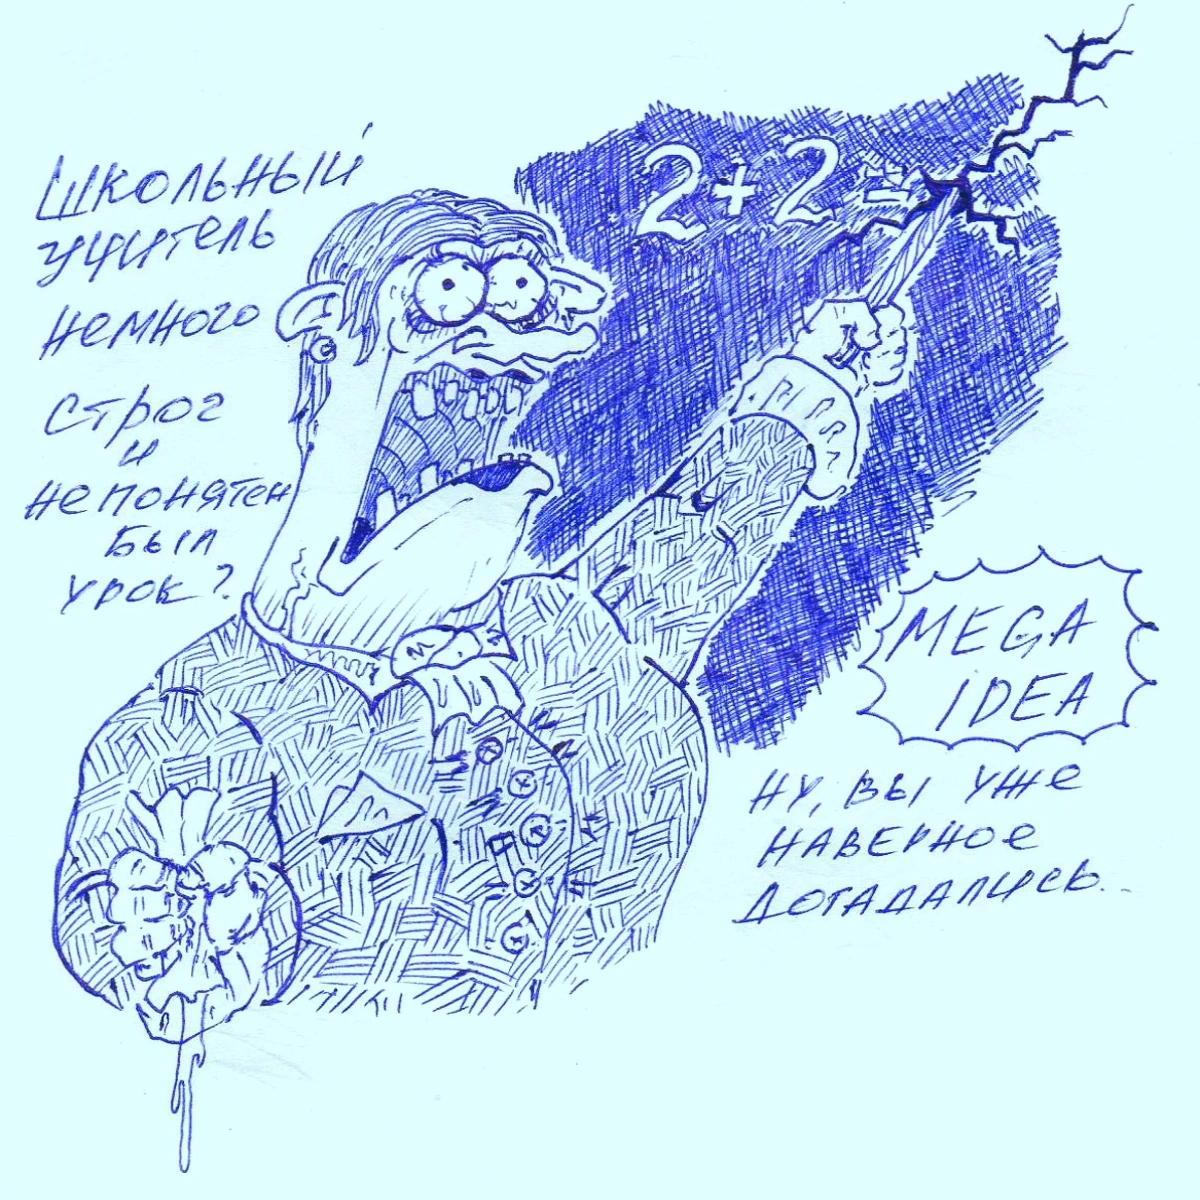 ШКОЛЬНЫЙ
УЧИТЕЛЬ
НЕМНОГО
СТРОГ
И
НЕПОНЯТЕН
БЫЛ
УРОК?
2+2=
MEGA
IDEA
НУ, ВЫ УЖЕ
НАВЕРНОЕ
ДОГАДАЛИСЬ...